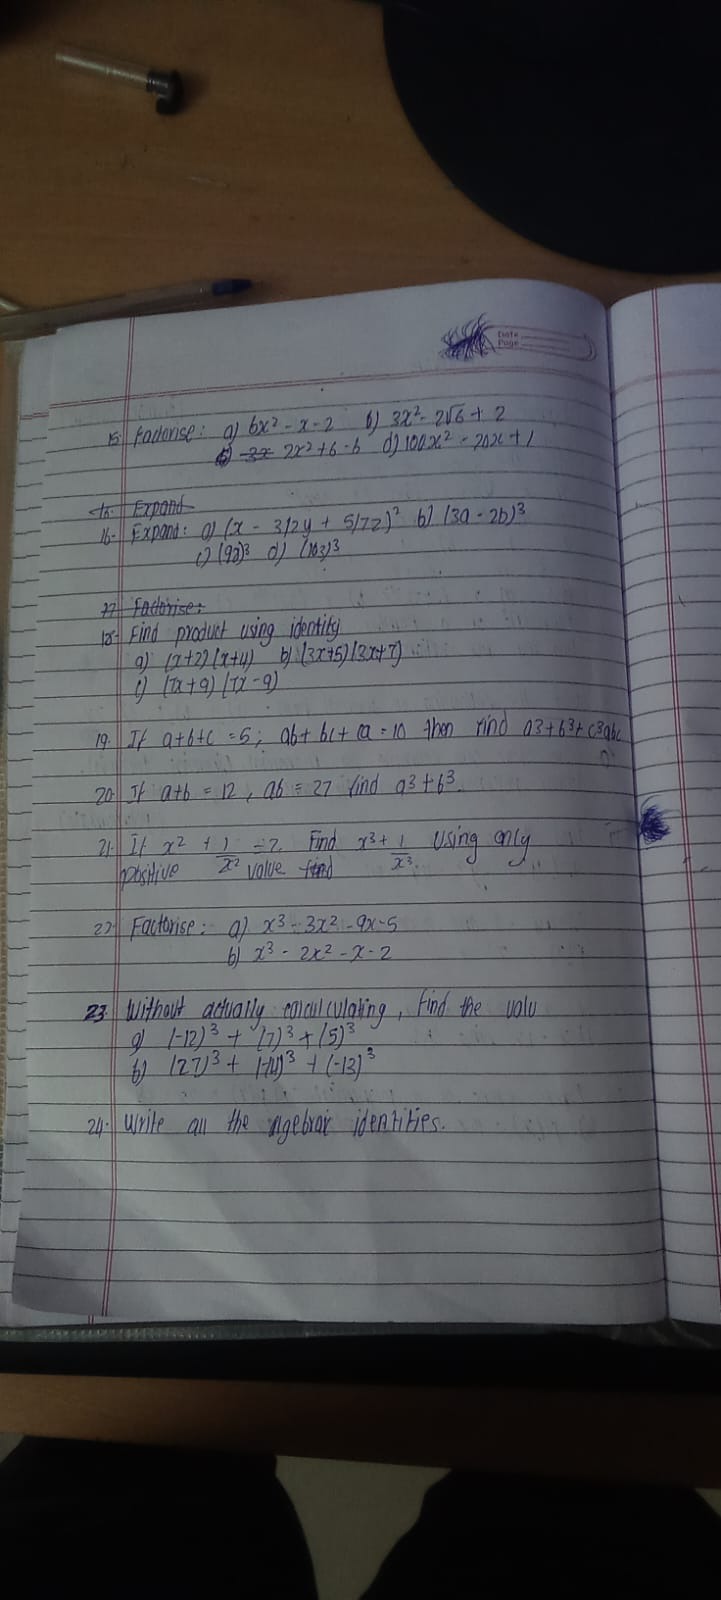 Date
Page
15. Factorise: a) 6x² - x - 2 b) 3x² - 2√6 + 2
2x² + 6 - 6 d) 100x² - 20x + 1
Expand
16. Expand: a) (x - 3/2y + 5/7z)² b) (3a - 2b)³
c) (92)³ d) (103)³
17. Factorise:
18. Find product using identity
a) (x+2)(x+4) b) (3x+5)(3x+7)
c) (7x+9)(7x-9)
19. If a+b+c = 5; ab+bc+ca = 10 then find a3+b3+c3
20. If a+b = 12, ab = 27 find a3+b3.
21. If x² + 1/x² = 7. Find x³ + 1/x³ using only
positive value find
22. Factorise: a) x³ - 3x² - 9x - 5
b) x³ - 2x² - x - 2
23. Without actually calculating, find the valu
a) (-12)³ + (7)³ + (5)³
b) (27)³ + (-14)³ + (-13)³
24. Write all the algebraic identities.